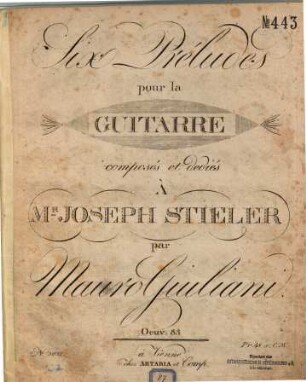 № 443
Six Préludes
pour la
GUITARRE
composés et dediés
À
Mr. JOSEPH STIELER
par
Mauro Giuliani.
Oeuv. 83
à Vienne
chez ARTARIA et Comp.